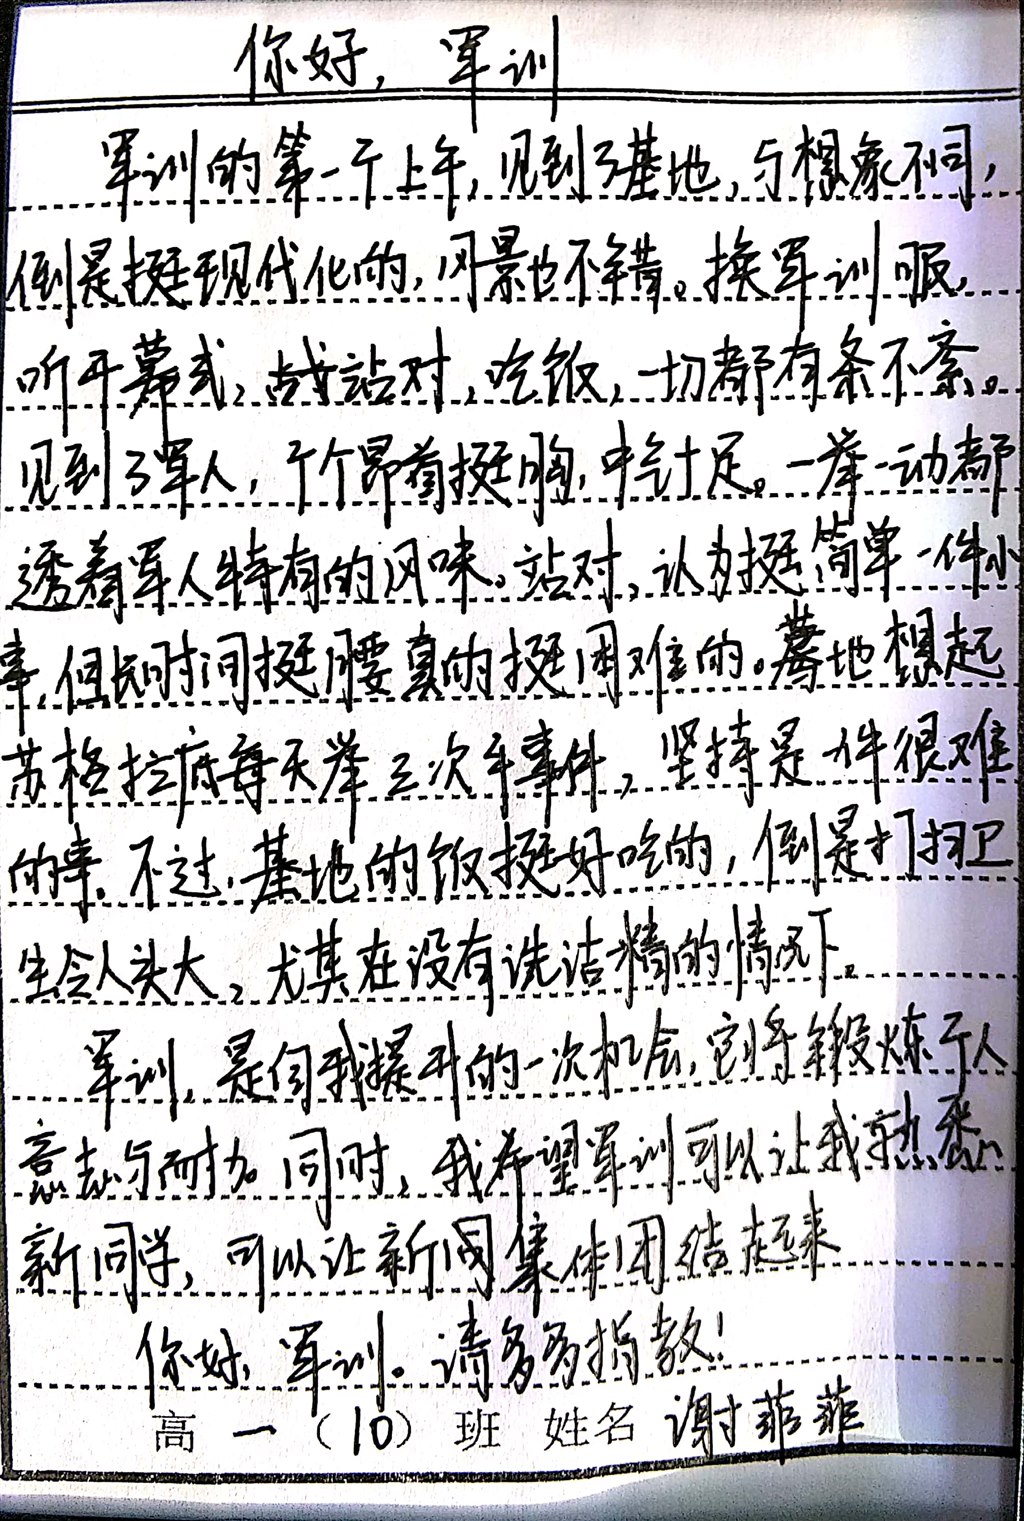 你好,军训
军训的第一个上午,见到了基地,与想象不同,
倒是挺现代化的,风景也不错。换军训服,
听开幕式,战站对,吃饭,一切都有条不紊。
见到了军人,个个昂首挺胸,中气十足。一举一动都
透着军人特有的风味。站对,认为挺简单一件小
事,但长时间挺腰真的挺困难的。蓦地想起
苏格拉底每天举三次手事件,坚持是一件很难
的事。不过,基地的饭挺好吃的,倒是打扫卫
生令人头大,尤其在没有洗洁精的情况下。
军训,是自我提升的一次机会,它将锻炼个人
意志与耐力。同时,我希望军训可以让我熟悉
新同学,可以让新同集体团结起来
你好,军训。请多多指教!
高一(10)班 姓名 谢菲菲